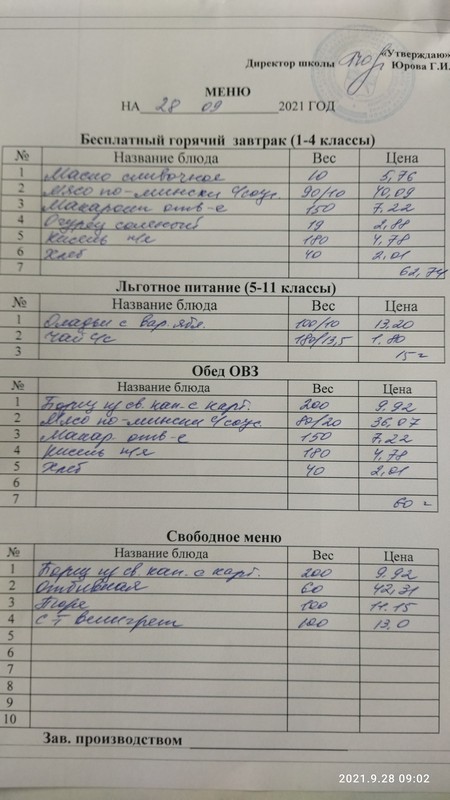 «Утверждаю»
Директор школы Юрова Г.И.
МЕНЮ
НА 28 09 2021 ГОД
Бесплатный горячий завтрак (1-4 классы)
№ Название блюда Вес Цена
1 Масло сливочное 10 5,76
2 Мясо по-мински с/соус. 90/10 40,09
3 Макароны отв-е 150 7,22
4 Огурец соленый 19 2,88
5 Кисель п/я 180 4,78
6 Хлеб 40 2,01
7 62,74
Льготное питание (5-11 классы)
№ Название блюда Вес Цена
1 Оладьи с вар. ябл. 100/10 13,20
2 Чай с/с 180/13,5 1,80
3 15 =
Обед ОВЗ
№ Название блюда Вес Цена
1 Борщ из св. кап. с карт. 200 9.92
2 Мясо по-мински с/соус. 80/20 36,07
3 Макар. отв-е 150 7,22
4 Кисель п/я 180 4,78
5 Хлеб 40 2,01
6
7 60 =
Свободное меню
№ Название блюда Вес Цена
1 Борщ из св. кап. с карт. 200 9.92
2 Отбивная 60 42,31
3 Пюре 100 11.15
4 С-т Винегрет 100 13.0
5
6
7
8
9
10
Зав. производством
2021.9.28 09:02